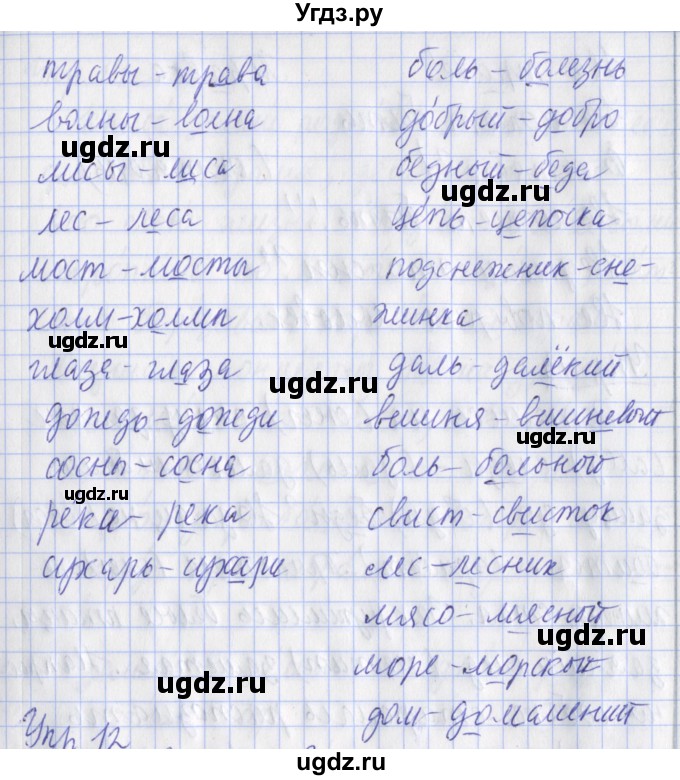 Угдз.ру
травы - трава
волны - волна
ugdz.ru
лисы - лиса
лес - леса
мост - мосты
холм - холмы
ugdz.ru
глаза - глаза
дождь - дожди
сосны - сосна
ugdz.ru
река - река
сухарь - сухари
ugdz.ru
Упр 12
боль - болезнь
до́брый - добро
ugdz.ru
бедный - беда
ugdz.ru
це́пь - цепочка
подснежник - сне-
жинка
ugdz.ru
даль - далёкий
вишня - вишневый
ugdz.ru
боль - больной
свист - свисток
лес - лесник
мясо - мясной
ugdz.ru
море - морской
дом - домашний
ugdz.ru